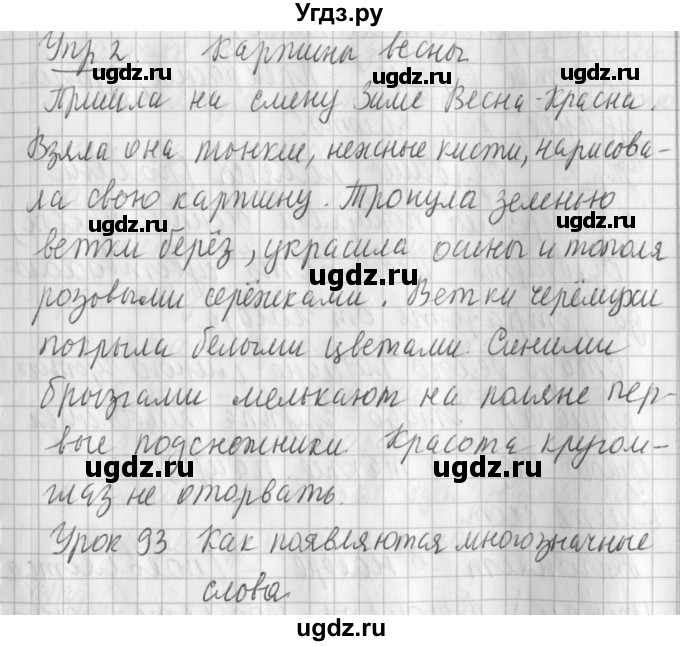 Угдз.ру
Упр 2 Картины весны
ugdz.ru ugdz.ru
Пришла на смену Зиме Весна-Красна.
ugdz.ru
Взяла она тонкие, нежные кисти, нарисова-
ла свою картину. Тронула зеленью
ugdz.ru ugdz.ru
ветки берёз, украсила осины и тополя
ugdz.ru
розовыми серёжками. Ветки черёмухи
покрыла белыми цветами. Синими
брызгами мелькают на поляне пер-
вые подснежники Красота кругом-
ugdz.ru ugdz.ru
глаз не оторвать.
Урок 93 Как появляются многозначные
слова
ugdz.ru